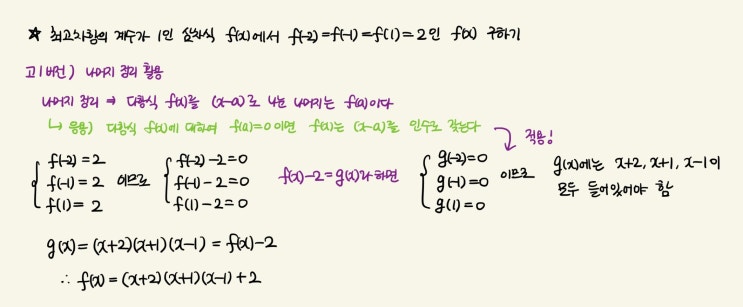 ☆ 최고차항의 계수가 1인 삼차식 f(x)에서 f(-2)=f(-1)=f(1)=2인 f(x) 구하기
고1버전) 나머지 정리 활용
나머지 정리 ⇒ 다항식 f(x)를 (x-a)로 나눈 나머지는 f(a)이다
↳ 응용) 다항식 f(x)에 대하여 f(a)=0이면 f(x)는 (x-a)를 인수로 갖는다
적용!
{ f(-2)=2 이므로 { f(-2)-2=0 f(x)-2=g(x)라 하면 { g(-2)=0 이므로 g(x)에는 x+2, x+1, x-1이
f(-1)=2 f(-1)-2=0 g(-1)=0 모두 들어있어야 함
f(1)=2 f(1)-2=0 g(1)=0
g(x)=(x+2)(x+1)(x-1)=f(x)-2
∴ f(x)=(x+2)(x+1)(x-1)+2